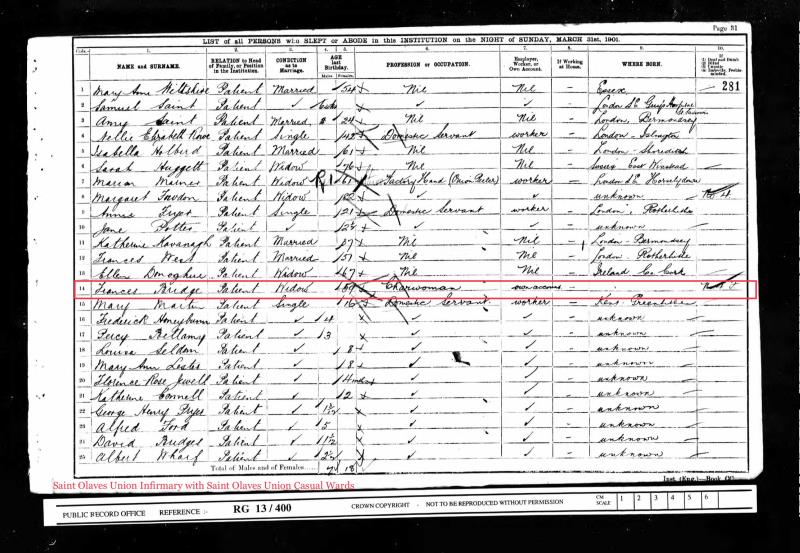 Page 31
LIST of all PERSONS who SLEPT or ABODE in this INSTITUTION on the NIGHT of SUNDAY, MARCH 31st, 1901.
1. 2. 3. 4. 5. 6. 7. 8. 9. 10.
NAME and SURNAME. RELATION to Head of Family, or Position in the Institution. CONDITION as to Marriage. AGE last Birthday. Males Females PROFESSION or OCCUPATION. Employer, Worker, or Own Account. If Working at Home. WHERE BORN.
281
1 Mary Ann Wiltshire Patient Married 54 Nil Nil Essex
2 Samuel Saint Patient London SE Guys Hospital
3 Amy Saint Patient Married 24 Nil Nil London, Bermondsey
4 Nellie Elizabeth Rowe Patient Single 42 Domestic Servant worker London - Islington
5 Isabella Holbird Patient Married 61 Nil Nil London Shoreditch
6 Sarah Huggett Patient Widow 76 Nil Nil East Grinstead
7 Marian Maines Patient Widow 61 Factory Hand worker London SE Horselydown
8 Margaret Patient Widow unknown
9 Annie Fryer Patient Single 21 Domestic Servant worker London, Rotherhithe
10 Jane Potter Patient unknown
11 Katherine Kavanagh Patient Married 37 Nil Nil London - Bermondsey
12 Frances West Patient Married 37 Nil Nil London Rotherhithe
13 Ellen Donoghue Patient Widow 67 Nil Nil Ireland Co. Cork
14 Frances Bridge Patient Widow 59 Charwoman own account
15 Mary Martin Patient Single 16 Domestic Servant worker Kent Greenhithe
16 Frederick Honeybunn Patient 4 unknown
17 Percy Bellamy Patient 3 unknown
18 Louisa Seldon Patient 8 unknown
19 Mary Ann Leslie Patient 8 unknown
20 Florence Rose Jewell Patient 4 mths unknown
21 Katherine Connell Patient 2 unknown
22 George Henry Fryer Patient 1½ unknown
23 Alfred Ford Patient 5 unknown
24 David Bridges Patient 1½ unknown
25 Albert Wharf Patient 2½ unknown
Total of Males and of Females 7 18
Saint Olaves Union Infirmary with Saint Olaves Union Casual Wards
Inst. (Eng.)—Book
PUBLIC RECORD OFFICE REFERENCE :- RG 13/400 CROWN COPYRIGHT - NOT TO BE REPRODUCED WITHOUT PERMISSION CM SCALE 1 2 3 4 5 6